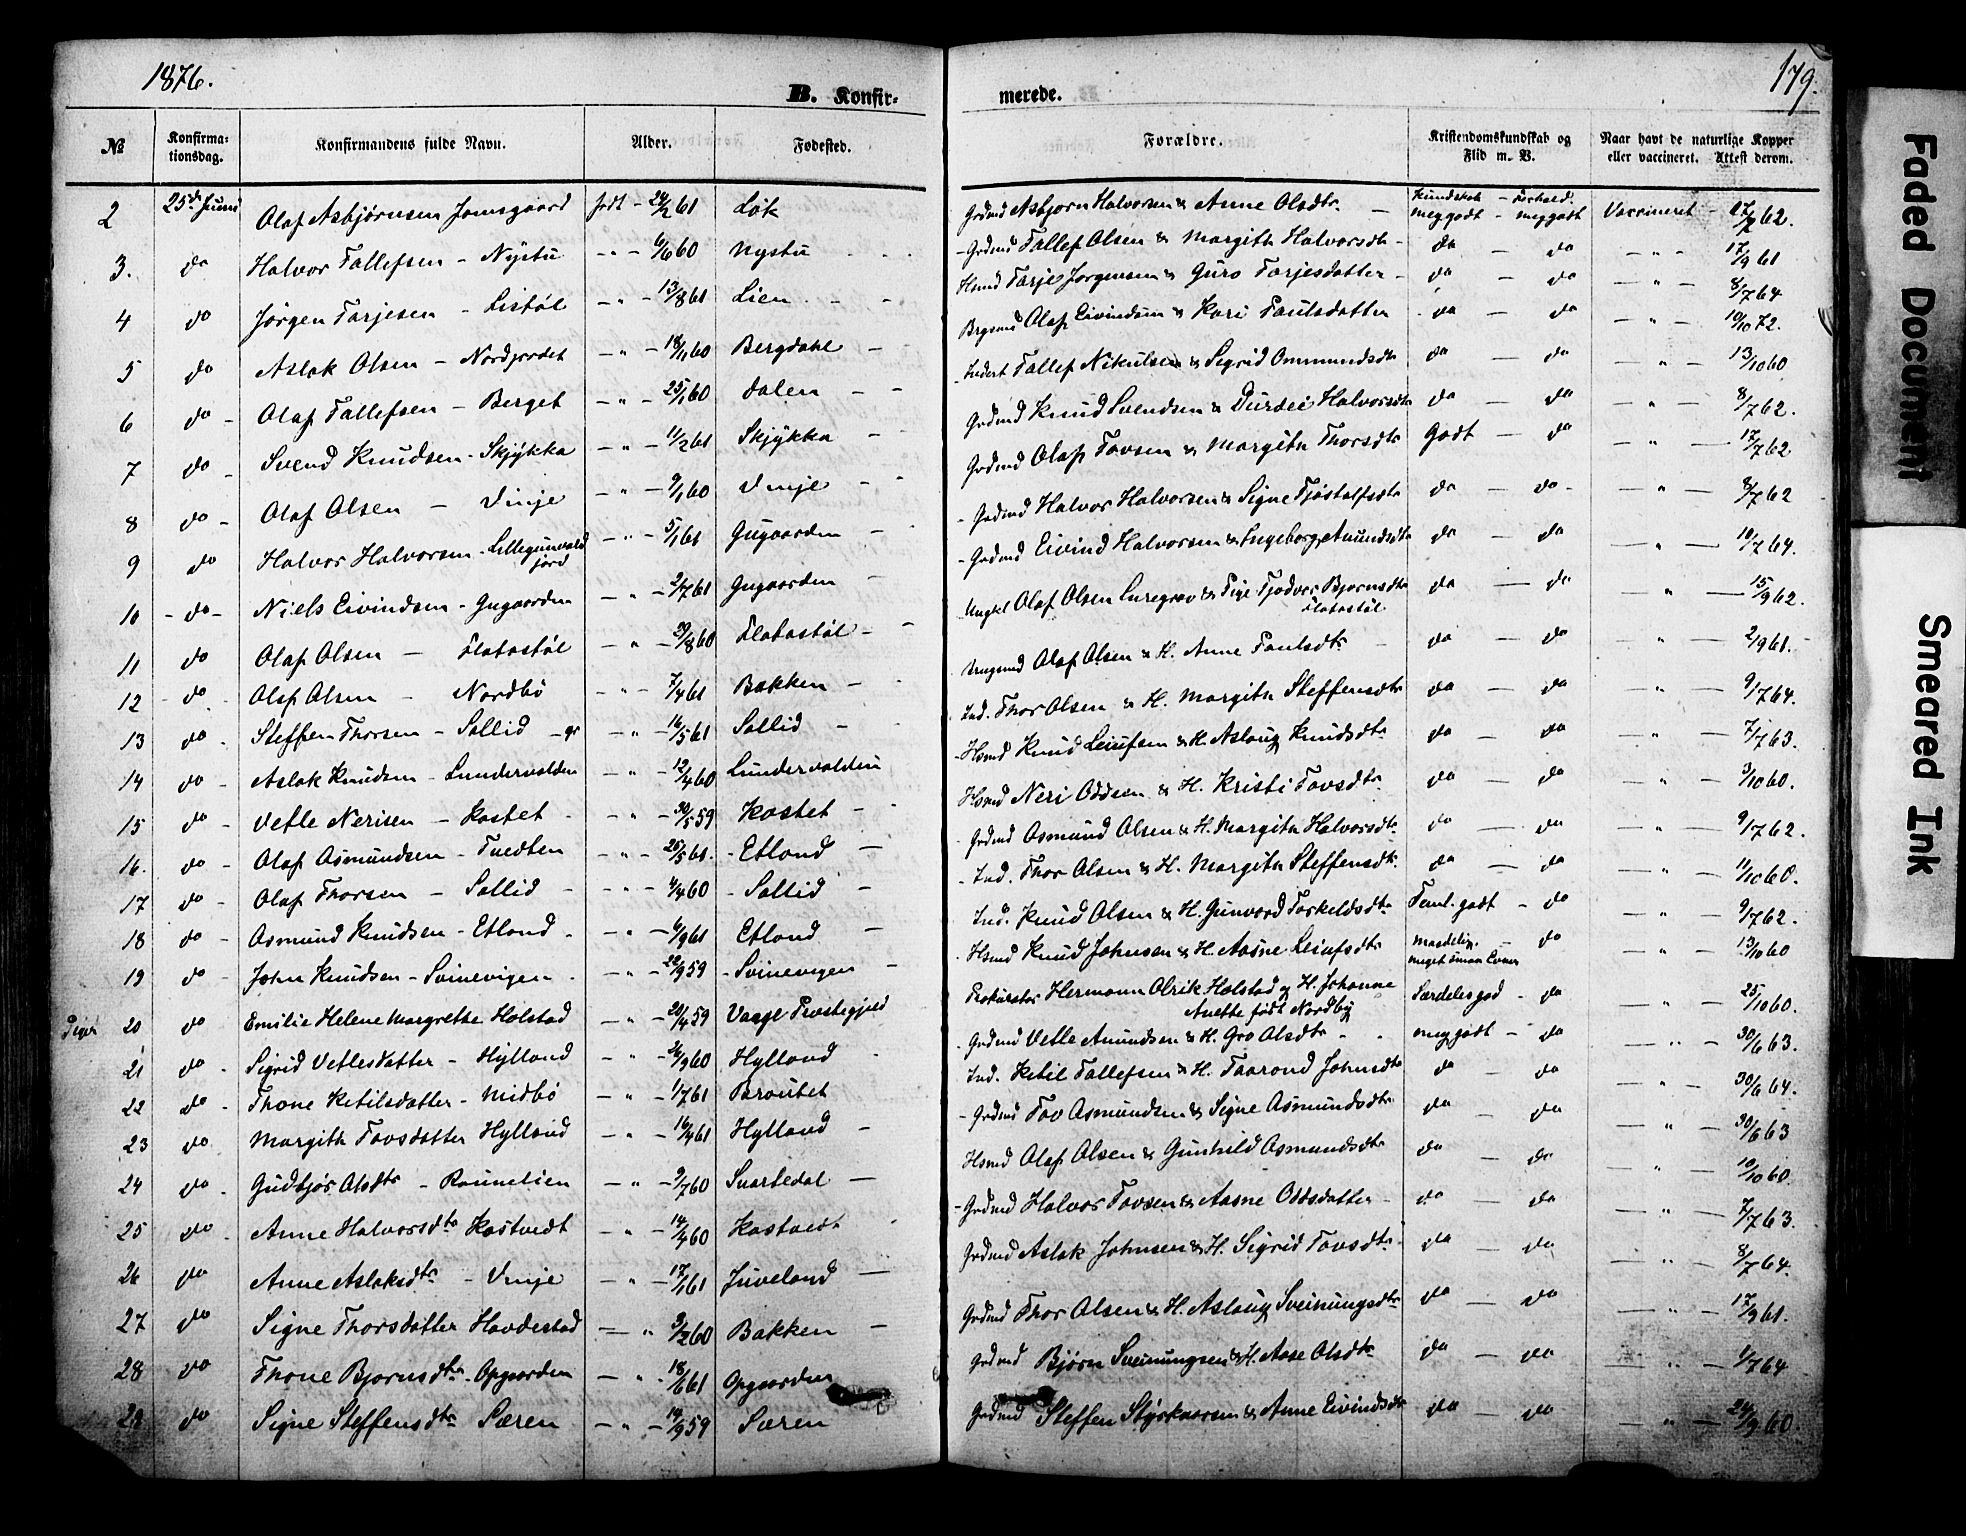 1876.
179.
B. Konfir-
merede.
№ Konfirma-
tionsdag. Konfirmandens fulde Navn. Alder. Fødested. Forældre. Kristendomskundskab og
Flid m. V. Naar havt de naturlige Kopper
eller vaccineret. Attest derom.
2 25de Juni Olaf Asbjørnsen Jamsgaard født - 24/2 61 Løk Grdmd Asbjørn Halvorsen & Anne Olsdtr. — Kundskab - Forhold. meg godt - meg godt Vaccineret - 17/7 62.
3. do Halvor Tallefsen - Nystu — " — 6/6 60 Nystu - Grdmd Tallef Olsen & Margith Halvorsdtr - do — do — " — 17/9 61
4 do Jørgen Tarjesen - Listøl — " — 13/8 61 Lien Hsmd Tarje Jørgensen & Guro Tarjesdatter - do — do — " — 8/7 64
5 do Aslak Olsen - Nordjordet — " — 18/11 60 Bergdahl — Brgsmd Olaf Eivindsen & Kari Paulsdatter - do — do — " — 10/10 72.
6 do - Olaf Tallefsen - Berget — " — 25/1 60 Dalen — - Inderst Tallef Nikulsen & Sigrid Ommundsdtr do — do " — 13/10 60
7 do - Svend Knudsen - Skjykka — " — 11/2 61 Skjykka — Grdmd Knud Svendsen & Durdei Halvorsdtr do — do — " — 8/7 62.
8 do - Olaf Olsen — Vinje — " — 9/1 60 Vinje - Grdmd Olaf Tovsen & Margith Thorsdtr Godt — do — " — 17/7 62
9 do Halvor Halvorsen - Lillegunvald
jord — " — 5/1 61 Gugaarden - - Grdmd Halvor Halvorsen & Signe Tjøstolfsdtr do — do - — " — 8/7 62
10 - do - Niels Eivindsen - Gugaarden — " — 2/7 61 Gugaarden — - Grdmd Eivind Halvorsen & Ingeborg Amundsdtr do — do — " — 19/7 64.
11 do Olaf Olsen — Flatastøl — " — 29/8 60 Flatastøl - Ungkl Olaf Olsen Luregrav & Pige Tjodvor Bjørnsdtr
Flatastøl do — do " — 15/9 62.
12 - do - Olaf Olsen — Nordbø — " — 7/4 61 Bakken — Olaf Olsen & H. Anne Paulsdtr do — do " — 2/9 61.
13 do - Steffen Thorsen - Sollid — " — 16/5 61 Sollid - Ind. Thor Olsen & H. Margith Steffensdtr do — do " — 9/7 64.
14 do - Aslak Knudsen - Lundervolden — " — 12/4 60 Lundervolden - Hsmd Knud Leiufsen & H. Aslaug Knudsdtr do — do " — 7/7 63.
15 do - Vetle Nerisen - Kostet — " — 30/5 59 Kostet — Hsmd Neri Oddsen & H. Kristi Tovsdtr. do — do " — 3/10 60.
16. do - Olaf Asmundsen - Tvedten — " — 25/5 61. - Etland — - Grdmd Asmund Olsen & H. Margith Halvorsdtr do — do " — 9/7 62.
17 do - Olaf Thorsen - Sollid - — " — 4/4 60 - Sollid — - Ind. Thor Olsen & H. Margith Steffensdtr. do — do — " — 11/10 60.
18 do - Asmund Knudsen - Etland. — " — 6/9 61 Etland — Ind. Knud Olsen & H. Gunvord Torkeldsdtr Taml. godt - do — " — 9/7 62.
19 do - John Knudsen - Svinevigen — " — 22/9 59 - Svinevigen - Hsmd Knud Johnsen & H. Aasne Leiufsdtr Maadelig.
meget smaa Evner - do — " — 13/10 60
Piger 20 do Emilie Helene Margrethe Holstad — " — 20/4 59 Vaage Præstegjeld Prokurator Hermann Olrik Holstad og H. Johanne
Anette født Nordby Særdeles god - do — " — 25/10 60.
21 do - Sigrid Vetlesdatter - Hylland — " — 24/9 60 Hylland - Grdmd Vetle Amundsen & H. Gro Olsdtr - meg godt - do — " — 30/6 63.
22 do - Thone Ketilsdatter - Midbø — " — 1/7 61 Brautet Ind. Ketil Tallefsen & H. Taarond Johnsdtr do — do — " — 30/6 64.
23 do Margith Tovsdatter Hylland — " — 16/4 61 Hylland — - Grdmd Tov Asmundsen & Signe Asmundsdtr do — do — " — 30/6 63
24 do - Gudbjør Olsdtr - Raunelien — " — 9/7 60 Svartedal — Hsmd Olaf Olsen & Gunhild Asmundsdtr do — do — " — 10/10 60.
25 do - Anne Halvorsdtr Kostvedt — " — 14/4 60 Kostvedt - Grdmd Halvor Tovsen & Aasne Oddsdatter - do — do — " — 7/7 63.
26 do Anne Aslaksdtr. - Vinje — " — 17/1 61 Juveland — Grdmd Aslak Johnsen & H. Sigrid Tovsdtr. do — do — " — 8/7 64.
27 do Signe Thorsdatter Havderstad — " — 3/2 60 Bakken — Grdmd Thor Olsen & H. Aslaug Sveinungsdtr do — do — " — 17/9 61.
28 do Thone Bjørnsdtr. Opgaarden — " — 18/6 61 Opgaarden Grdmd Bjørn Sveinungsen & H. Aase Olsdtr do — do — " — 1/7 64
29 do Signe Steffensdtr Særen — " — 14/9 59 Særen Grdmd Steffen Styrkaarsen & Anne Eivindsdtr do — do — " — 24/9 60.
Faded Document
Smeared Ink